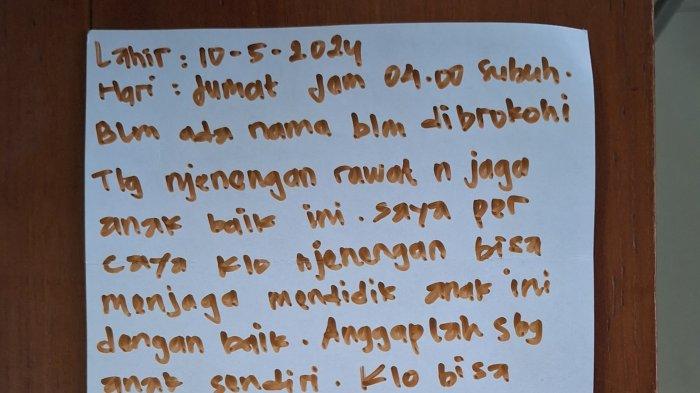 Lahir : 10-5-2024
Hari : Jumat jam 04.00 subuh.
Blm ada nama blm dibrokohi
Tlg njenengan rawat n jaga
anak baik ini. saya per
caya klo njenengan bisa
menjaga mendidik anak ini
dengan baik. Anggaplah sbg
anak sendiri. Klo bisa